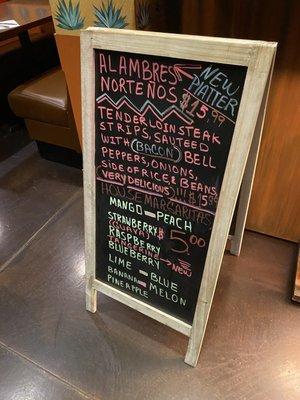 ALAMBRES NEW PLATTER
NORTEÑOS $15.99
TENDERLOIN STEAK
STRIPS, SAUTEED
WITH (BACON) BELL
PEPPERS, ONIONS,
SIDE OF RICE & BEANS
VERY DELICIOUS!!! $15.99
HOUSE MARGARITAS
MANGO - PEACH
STRAWBERRY $5.00
(GUAVA)
RASPBERRY TANGERINE → NEW
BLUEBERRY
LIME - BLUE
BANANA - MELON
PINEAPPLE